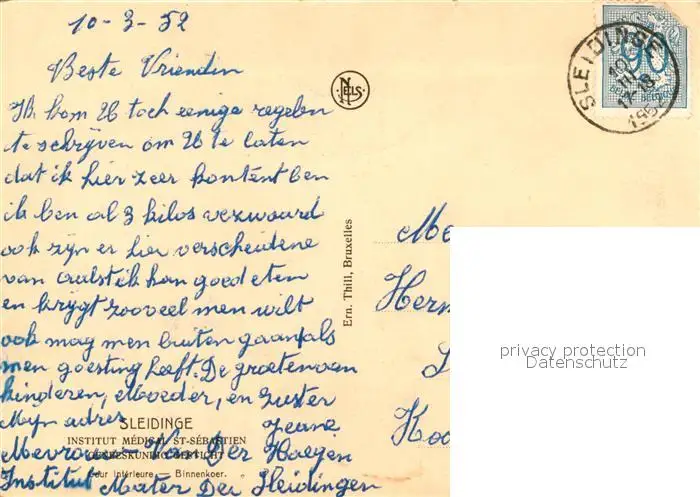 10-3-52
Beste Vriendin
Ik kom U toch eenige regelen
te schrijven om U te laten
dat ik hier zeer kontent ben
ik ben al 3 kilos verzwaard
ook zijn er hier verscheidene
van Aalst ik kan goed eten
en krijgt zooveel men wilt
ook mag men buiten gaan als
men goesting heeft. De groeten van
kinderen, Moeder, en Zuster
Mijn adres Jeane
Mevrouw Van Der Haegen
Institut Mater Dei Sleidingen
SLEIDINGE
INSTITUT MÉDICAL ST-SÉBASTIEN
GENEESKUNDIG GESTICHT
Cour intérieure — Binnenkoer.
NELS
Ern. Thill, Bruxelles
SLEIDINGE
10
III
17-18
1952
90
Me
Herm
privacy protection
Datenschutz